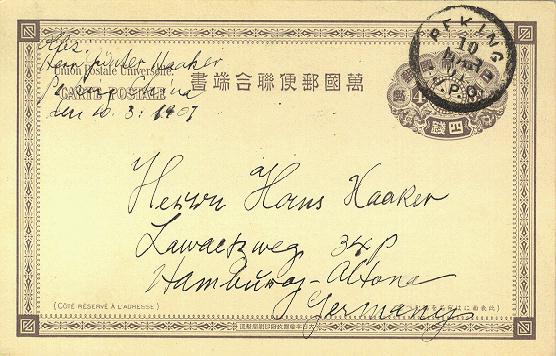 Abs.
Herr Günter Haaker
Union Postale Universelle.
CARTE POSTALE
Peking China
den 10. 3. 1901
書端合聯便郵國萬
PEKING
10
MAR
01
J.P.O.
4
錢四
Herrn Hans Haaker
Lawaetzweg 34 P
Hamburg-Altona
Germany
(CÔTÉ RÉSERVÉ À L'ADRESSE)